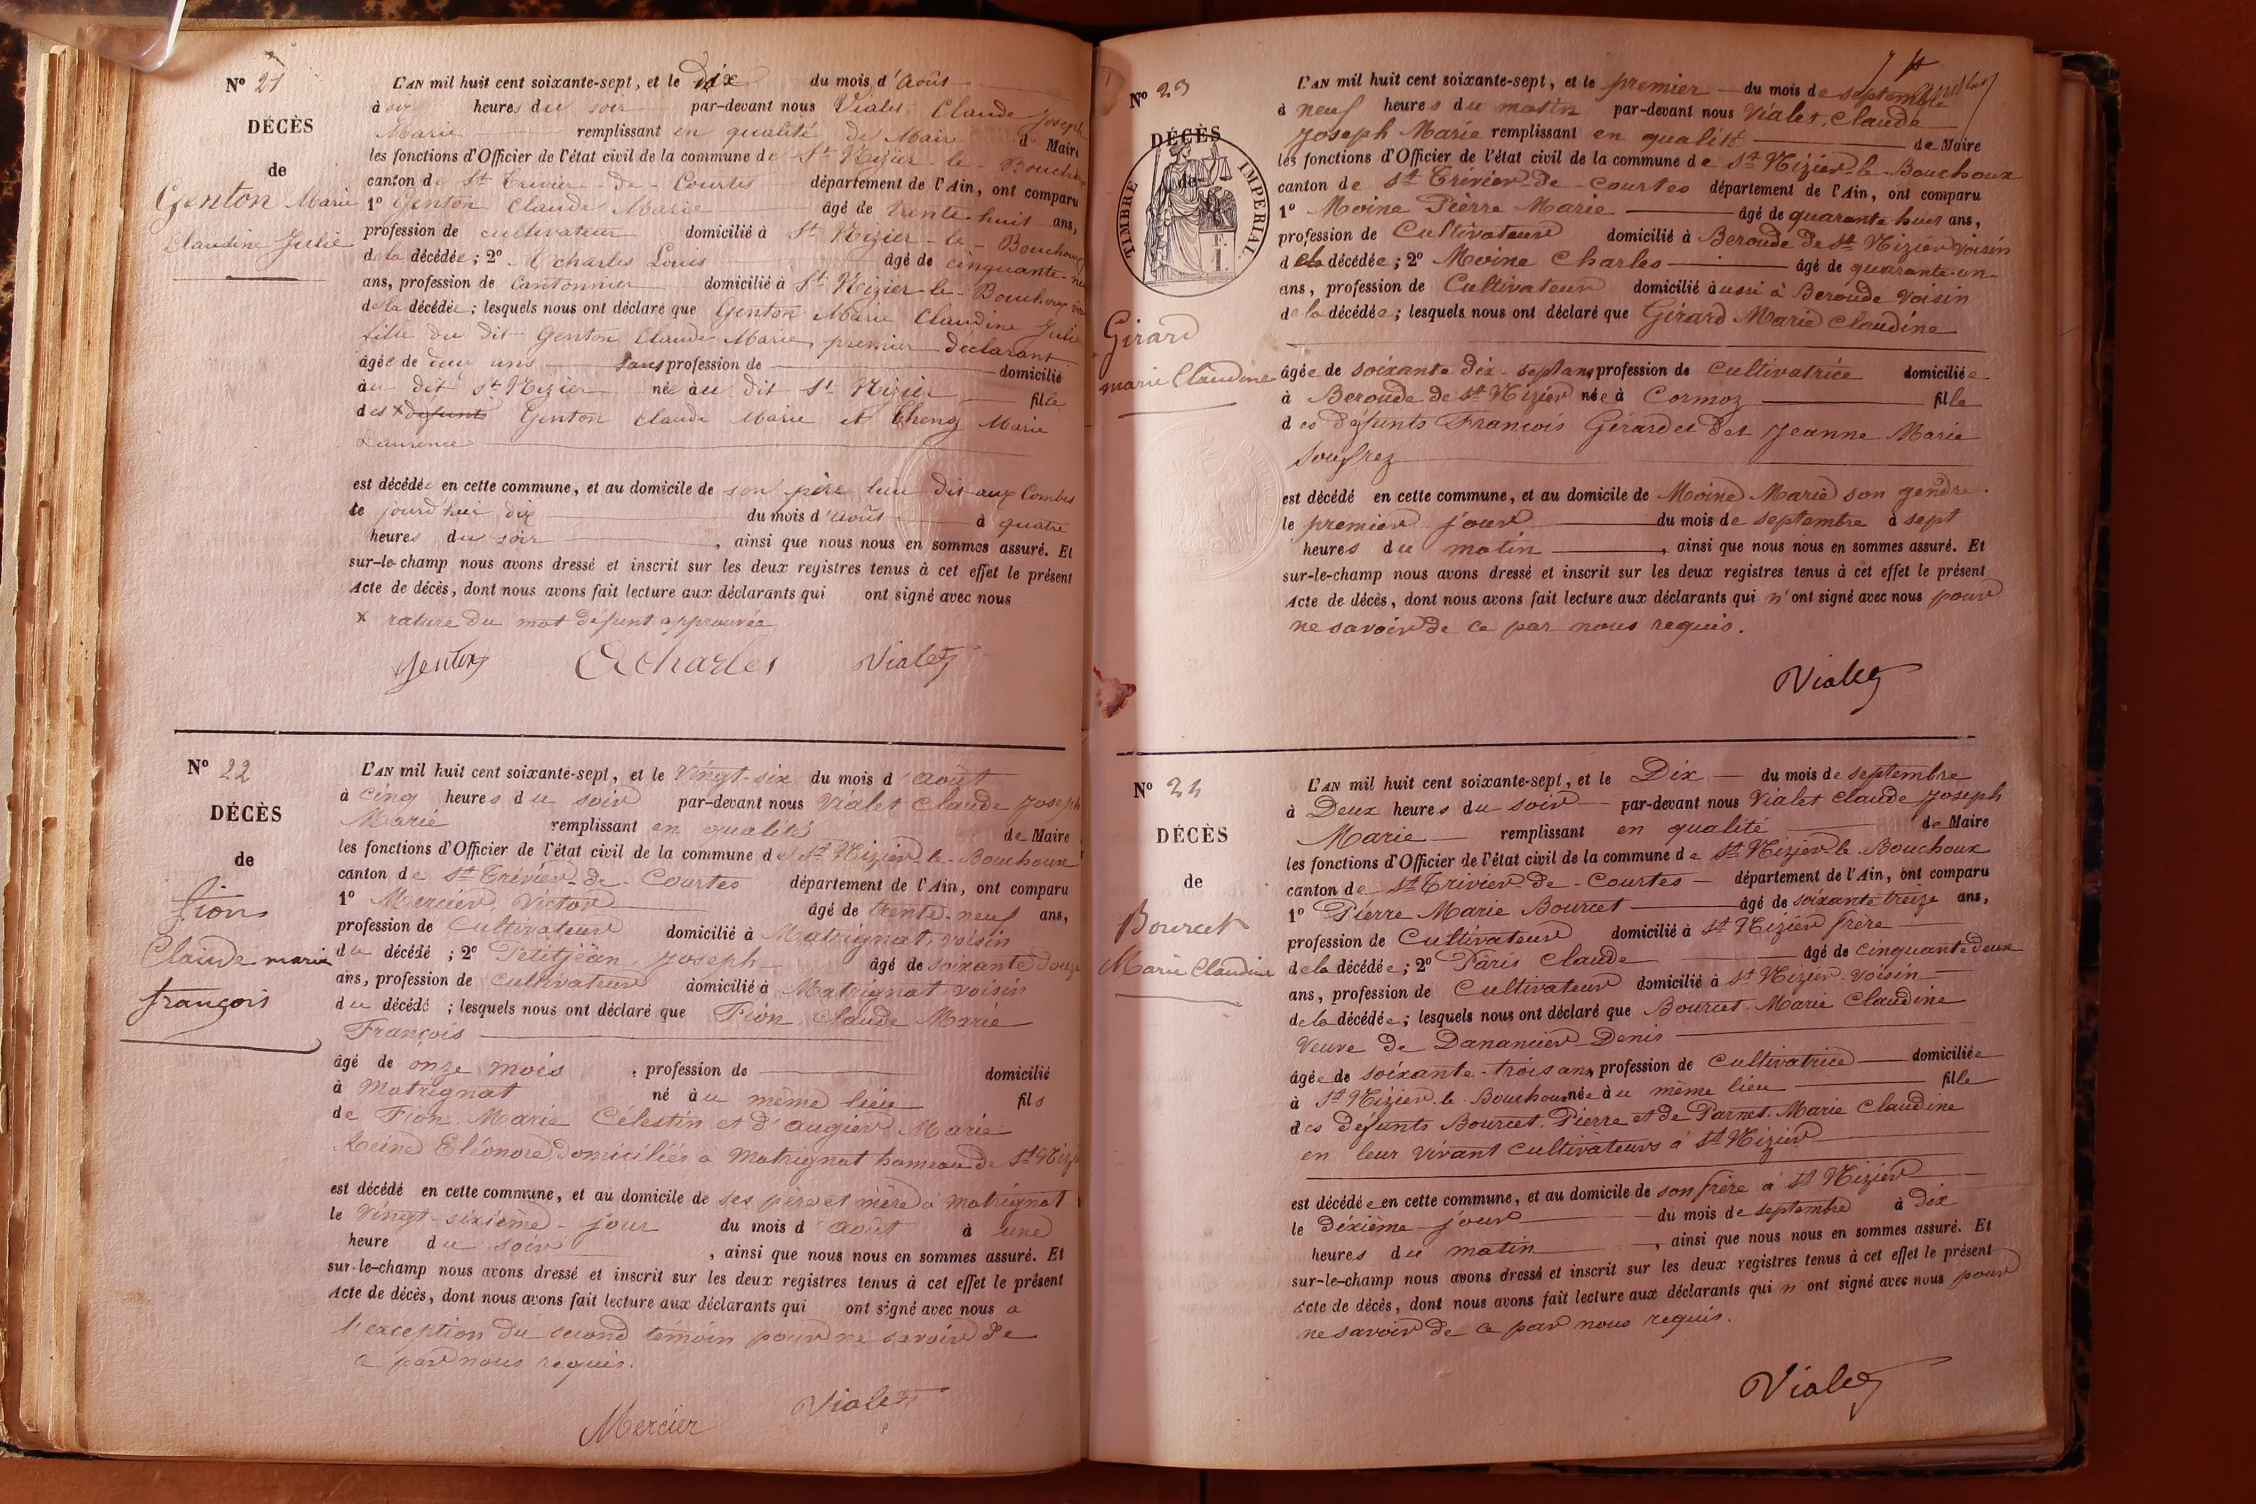 N° 21
DÉCÈS
de
Genton Marie
Claudine Julie
L'AN mil huit cent soixante-sept, et le dix du mois d'Août
à heures du soir par-devant nous Vialet Claude Joseph
Marie remplissant en qualité de Maire de Maire
les fonctions d'Officier de l'état civil de la commune de St Nizier-le-Bouchoux
canton de St Trivier-de-Courtes département de l'Ain, ont comparu
1° Genton Claude Marie âgé de trente huit ans,
profession de cultivateur domicilié à St Nizier-le-Bouchoux
de la décédée; 2° Louis âgé de cinquante-
ans, profession de Cantonnier domicilié à St Nizier-le-Bouchoux
de la décédée; lesquels nous ont déclaré que Genton Marie Claudine Julie
fille du dit Genton Claude Marie premier déclarant
âgée de ans sans profession de domicilié
au dit St Nizier née au dit St Nizier fille
des x défunts Genton Claude Marie et Marie
Laurence
est décédée en cette commune, et au domicile de son père lieu dit aux Combes
le jourd'hui dix du mois d'Août à quatre
heures du soir, ainsi que nous nous en sommes assuré. Et
sur-le-champ nous avons dressé et inscrit sur les deux registres tenus à cet effet le présent
Acte de décès, dont nous avons fait lecture aux déclarants qui ont signé avec nous
x rature du mot défunt approuvée
Genton Vialet
N° 22
DÉCÈS
de
Fion
Claude marie
françois
L'AN mil huit cent soixante-sept, et le Vingt-six du mois d'août
à cinq heures du soir par-devant nous Vialet Claude Joseph
Marie remplissant en qualité de Maire
les fonctions d'Officier de l'état civil de la commune de St Nizier-le-Bouchoux
canton de St Trivier-de-Courtes département de l'Ain, ont comparu
1° Mercier Victor âgé de trente-neuf ans,
profession de Cultivateur domicilié à Matrignat, voisin
du décédé; 2° Petitjean Joseph âgé de soixante douze
ans, profession de Cultivateur domicilié à Matrignat voisin
du décédé; lesquels nous ont déclaré que Fion Claude Marie
François
âgé de onze mois, profession de domicilié
à Matrignat né au même lieu fils
de Fion Marie Célestin et d'augier Marie
Reine Eléonore domiciliés à Matrignat hameau de St Nizier
est décédé en cette commune, et au domicile de ses père et mère à Matrignat
le Vingt-sixième jour du mois d'août à une
heure du soir, ainsi que nous nous en sommes assuré. Et
sur-le-champ nous avons dressé et inscrit sur les deux registres tenus à cet effet le présent
Acte de décès, dont nous avons fait lecture aux déclarants qui ont signé avec nous a
l'exception du second témoin pour ne savoir de
ce par nous requis.
Mercier Vialet
N° 23
DÉCÈS
de
TIMBRE IMPÉRIAL
1 F.
Girard
marie Claudine
L'AN mil huit cent soixante-sept, et le premier du mois de septembre
à neuf heures du matin par-devant nous Vialet, Claude
Joseph Marie remplissant en qualité de Maire
les fonctions d'Officier de l'état civil de la commune de St Nizier-le-Bouchoux
canton de St Trivier-de-Courtes département de l'Ain, ont comparu
1° Moine Pierre Marie âgé de quarante huit ans,
profession de Cultivateur domicilié à Beroude de St Nizier voisin
de la décédée; 2° Moine Charles âgé de quarante-un
ans, profession de Cultivateur domicilié aussi à Beroude voisin
de la décédée; lesquels nous ont déclaré que Girard Marie Claudine
âgée de soixante dix-sept ans, profession de Cultivatrice domiciliée
à Beroude de St Nizier née à Cormoz fille
des défunts François Girard et de Jeanne Marie
Soufrez
est décédé en cette commune, et au domicile de Moine Marie son gendre
le premier jour du mois de septembre à sept
heures du matin, ainsi que nous nous en sommes assuré. Et
sur-le-champ nous avons dressé et inscrit sur les deux registres tenus à cet effet le présent
Acte de décès, dont nous avons fait lecture aux déclarants qui n'ont signé avec nous pour
ne savoir de ce par nous requis.
Vialet
N° 24
DÉCÈS
de
Bourcet
Marie Claudine
L'AN mil huit cent soixante-sept, et le Dix du mois de septembre
à Deux heures du soir par-devant nous Vialet Claude Joseph
Marie remplissant en qualité de Maire
les fonctions d'Officier de l'état civil de la commune de St Nizier-le Bouchoux
canton de St Trivier-de-Courtes département de l'Ain, ont comparu
1° Pierre Marie Bourcet âgé de soixante treize ans,
profession de Cultivateur domicilié à St Nizier frère
de la décédée; 2° Pâris Claude âgé de cinquante deux
ans, profession de Cultivateur domicilié à St Nizier voisin
de la décédée; lesquels nous ont déclaré que Bourcet Marie Claudine
Veuve de Danancier Denis
âgée de soixante-trois ans, profession de Cultivatrice domiciliée
à St Nizier-le Bouchoux née au même lieu fille
des défunts Bourcet Pierre et de Parnet Marie Claudine
en leur vivant Cultivateurs à St Nizier
est décédée en cette commune, et au domicile de son frère à St Nizier
le dixième jour du mois de septembre à dix
heures du matin, ainsi que nous nous en sommes assuré. Et
sur-le-champ nous avons dressé et inscrit sur les deux registres tenus à cet effet le présent
Acte de décès, dont nous avons fait lecture aux déclarants qui n'ont signé avec nous pour
ne savoir de ce par nous requis.
Vialet